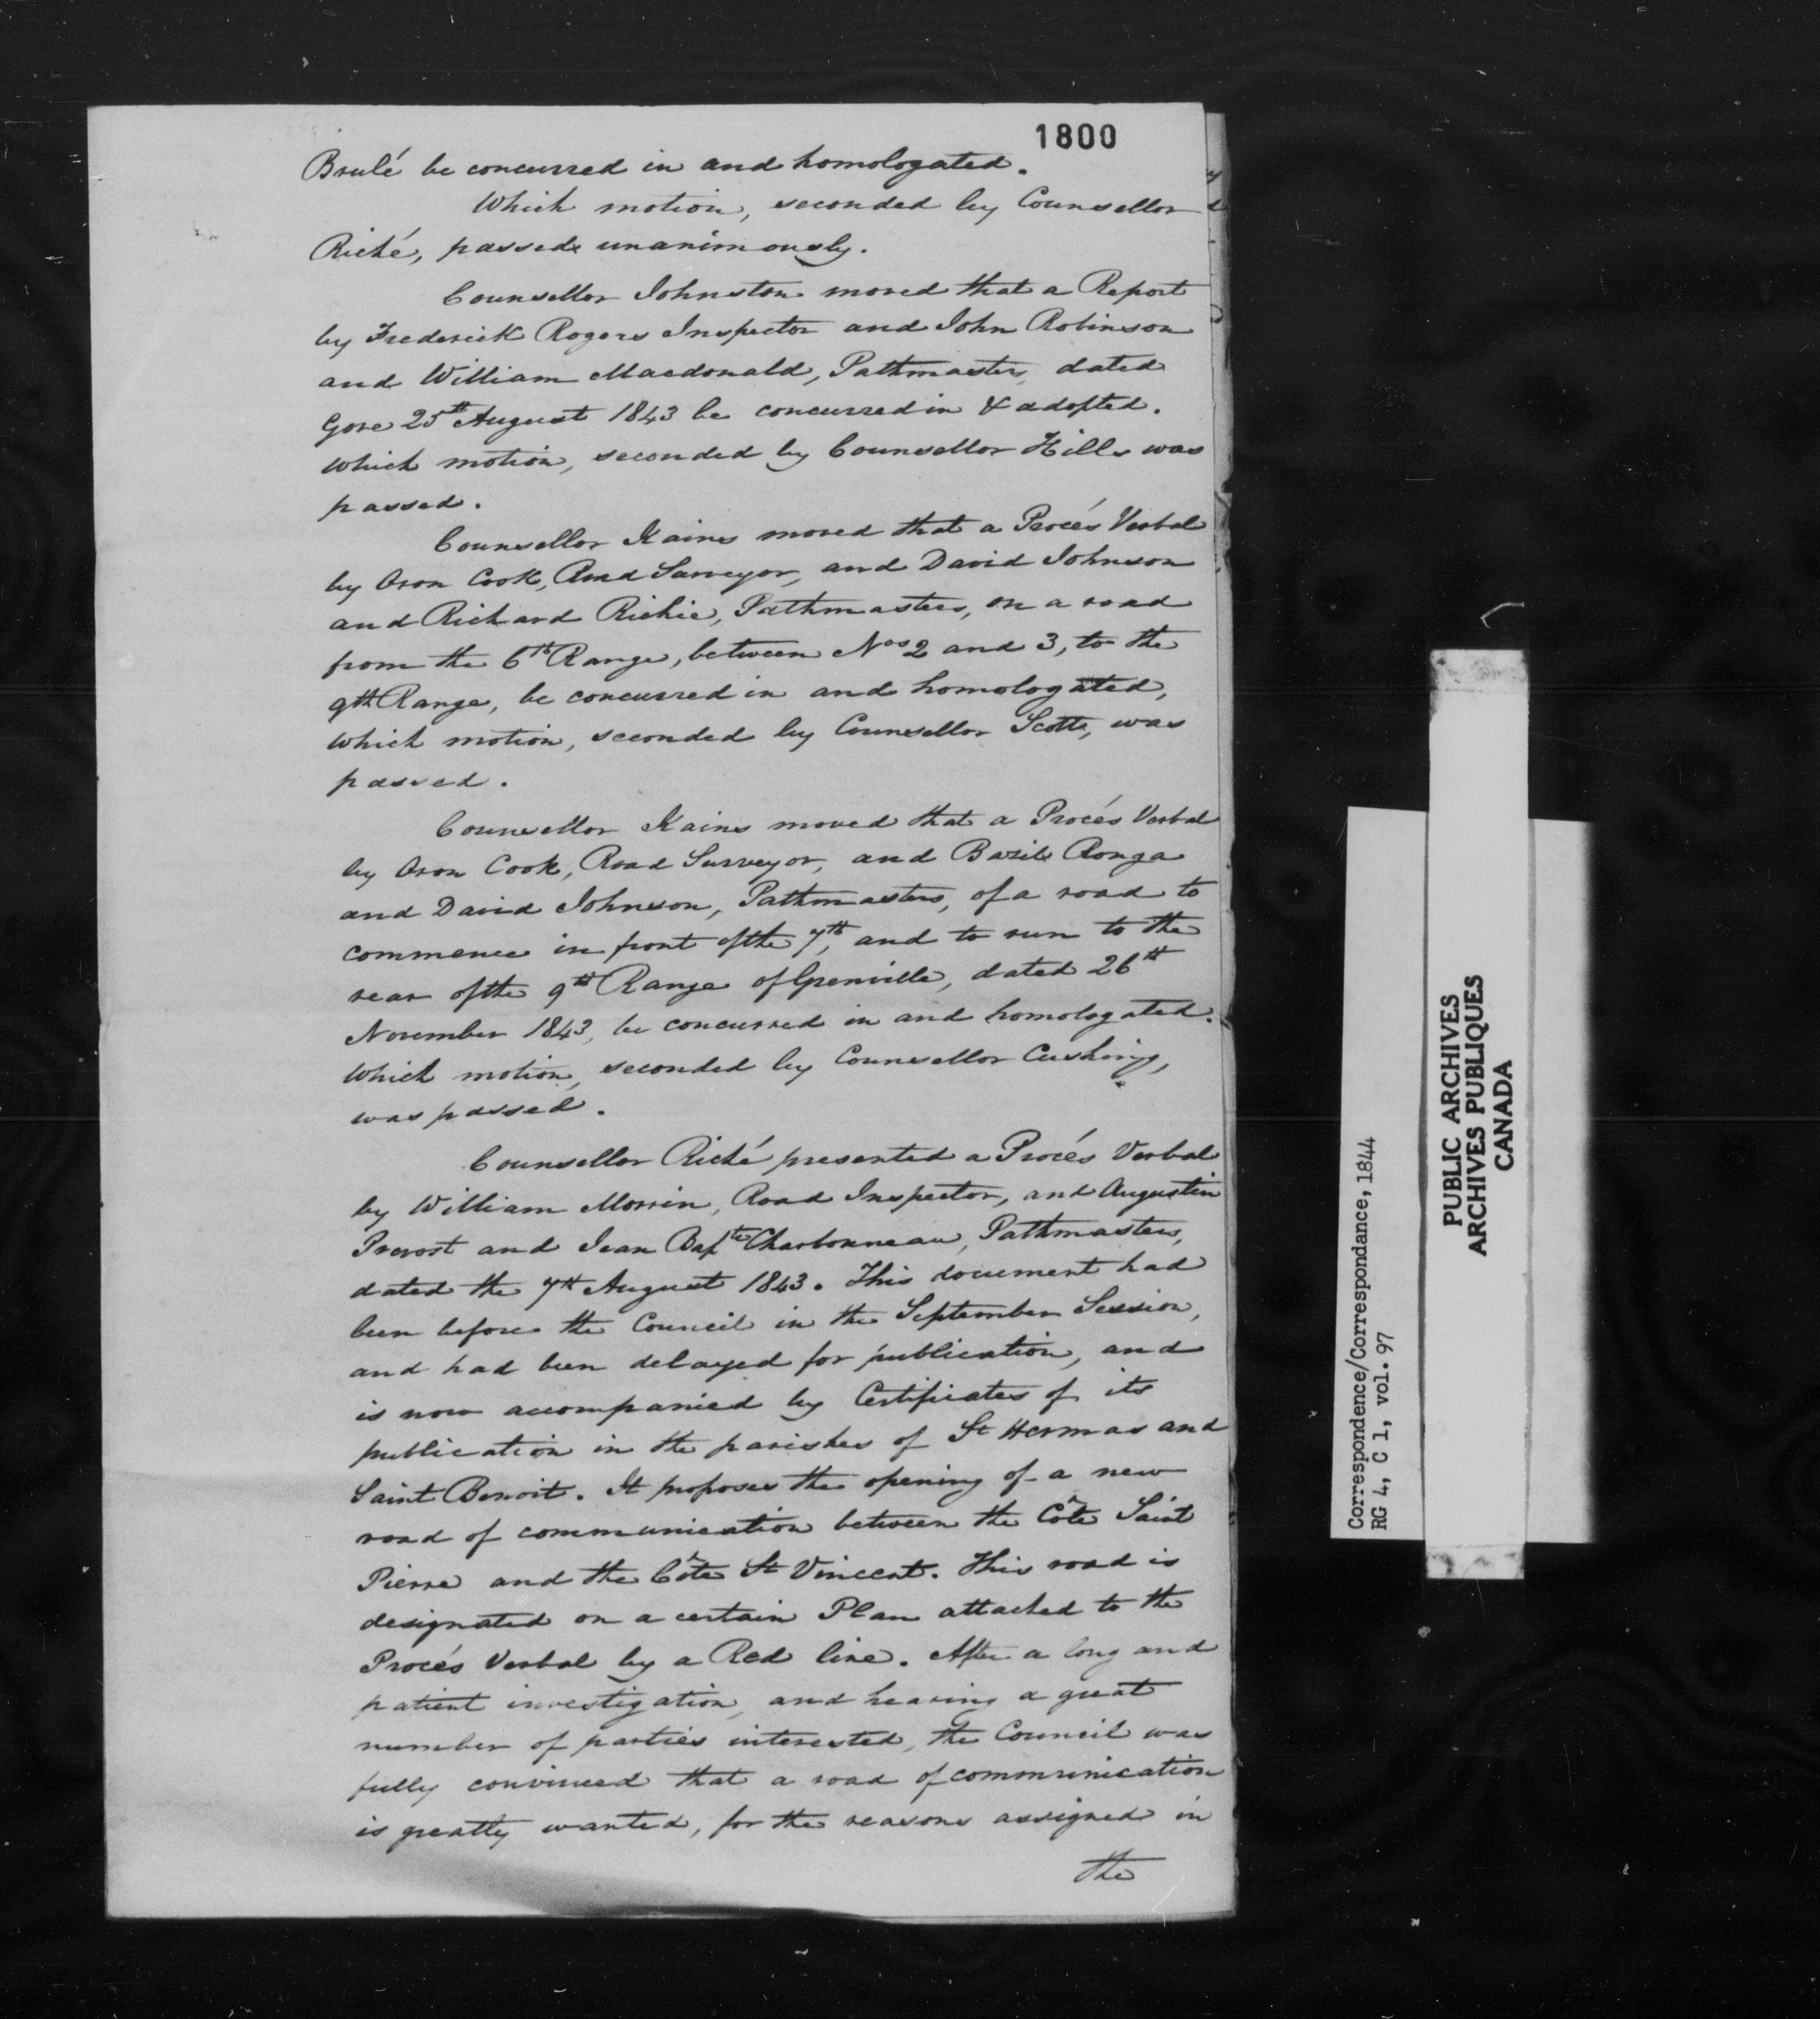 1800
Brulé be concurred in and homologated.
Which motion, seconded by Counsellor
Riché, passed unanimously.
Counsellor Johnston moved that a Report
by Frederick Rogers Inspector and John Robinson
and William Macdonald, Pathmasters, dated
Gore 25th August 1843 be concurred in & adopted.
Which motion, seconded by Counsellor Hills was
passed.
Counsellor Kains moved that a Procés Verbal
by Oron Cook, Road Surveyor, and David Johnson
and Richard Richie, Pathmasters, on a road
from the 6th Range, between Nos 2 and 3, to the
9th Range, be concurred in and homologated,
Which motion, seconded by Counsellor Scott, was
passed.
Counsellor Kains moved that a Procés Verbal
by Oron Cook, Road Surveyor, and Basile Ronga
and David Johnson, Pathmasters, of a road to
commence in front of the 7th, and to run to the
rear of the 9th Range of Grenville, dated 26th
November 1843, be concurred in and homologated.
Which motion, seconded by Counsellor Cushing,
was passed.
Counsellor Riché presented a Procés Verbal
by William Morrin, Road Inspector, and Augustin
Prevost and Jean Bapte Charbonneau, Pathmasters,
dated the 7th August 1843. This document had
been before the Council in the September Session,
and had been delayed for publication, and
is now accompanied by Certificates of its
publication in the parishes of St Hermas and
Saint Benoit. It proposes the opening of a new
road of communication between the Côte Saint
Pierre and the Côte St Vincent. This road is
designated on a certain Plan attached to the
Procés Verbal by a Red line. After a long and
patient investigation, and hearing a great
number of parties interested, the Council was
fully convinced that a road of communication
is greatly wanted, for the reasons assigned in
the
Correspondence/Correspondance, 1844
RG 4, C 1, vol. 97
PUBLIC ARCHIVES
ARCHIVES PUBLIQUES
CANADA